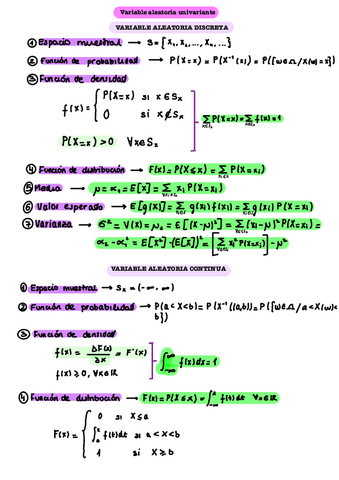 Variable aleatoria univariante
VARIABLE ALEATORIA DISCRETA
① Espacio muestral → S = {x₁, x₂, ..., xₙ, ...}
② Función de probabilidad → P(X=x) = P(X⁻¹(x)) = P({ω∈Ω/X(ω)=x})
③ Función de densidad
f(x) = { P(X=x) si x∈Sₓ
0 si x∉Sₓ
P(X=x) > 0 ∀x∈Sₓ
④ Función de distribución → F(x) = P(X≤x) = Σ P(X=xᵢ)
⑤ Media → μ = α₁ = E[X] = Σ xᵢ P(X=xᵢ)
⑥ Valor esperado → E[g(X)] = Σ g(xᵢ) f(xᵢ) = Σ g(xᵢ) P(X=xᵢ)
⑦ Varianza → σ² = V(X) = μ₂ = E[(X-μ)²] = Σ (xᵢ-μ)² P(X=xᵢ) =
α₂ - α₁² = E[X²] - (E[X])² = [Σ xᵢ² P(X=xᵢ)] - μ²
VARIABLE ALEATORIA CONTINUA
① Espacio muestral → Sₓ = (-∞, ∞)
② Función de probabilidad → P(a<X<b) = P(X⁻¹((a,b)) = P({ω∈Ω/a<X(ω)<
b})
③ Función de densidad
f(x) = = F'(x)
∫ f(x)dx = 1
f(x) ≥ 0, ∀x∈ℝ
④ Función de distribución → F(x) = P(X≤x) = ∫ f(t)dt ∀x∈ℝ
F(x) = { 0 si X≤a
∫ f(t)dt si a<X<b
1 si X≥b